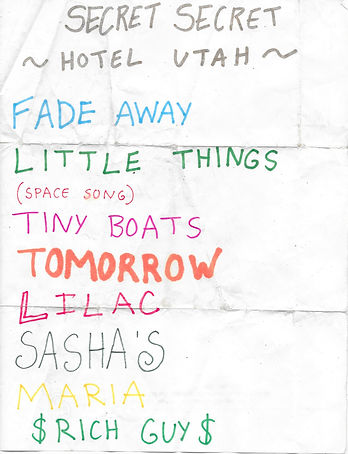 SECRET SECRET
~ HOTEL UTAH ~
FADE AWAY
LITTLE THINGS
(SPACE SONG)
TINY BOATS
TOMORROW
LILAC
SASHA'S
MARIA
$RICH GUY$